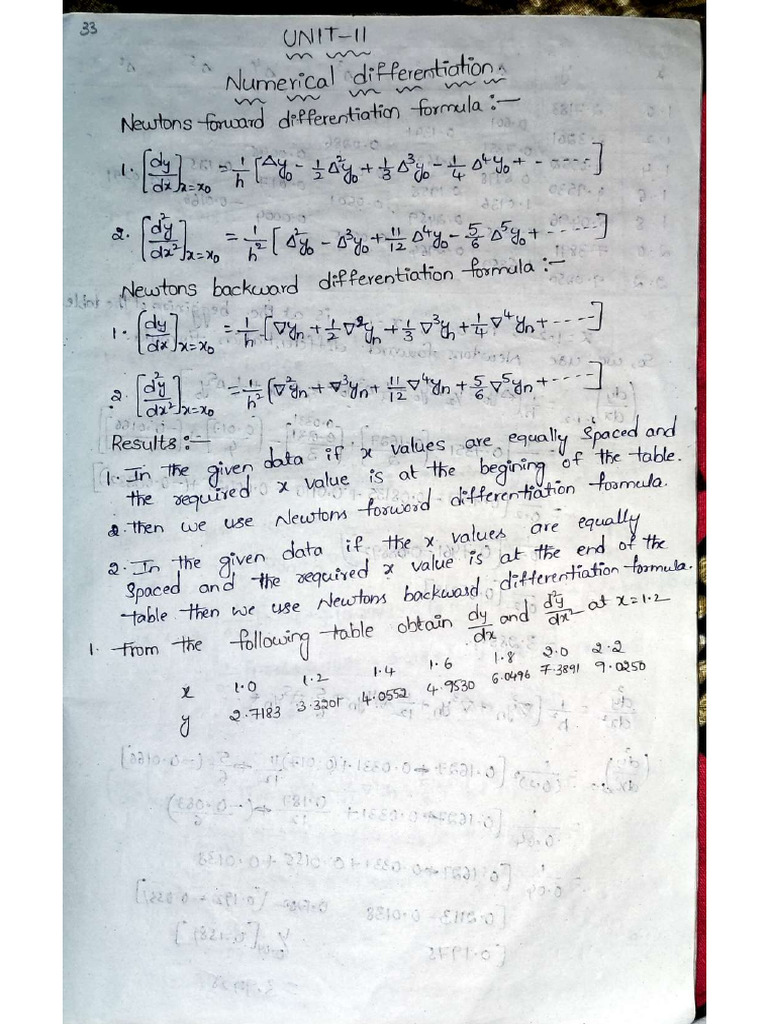 33
UNIT-II
Numerical differentiation
Newtons forward differentiation formula:-
1. [dy/dx]x=x₀ = 1/h [Δy₀ - 1/2 Δ²y₀ + 1/3 Δ³y₀ - 1/4 Δ⁴y₀ + - - - - -]
2. [d²y/dx²]x=x₀ = 1/h² [Δ²y₀ - Δ³y₀ + 11/12 Δ⁴y₀ - 5/6 Δ⁵y₀ + - - - - -]
Newtons backward differentiation formula:-
1. [dy/dx]x=x₀ = 1/h [∇yₙ + 1/2 ∇²yₙ + 1/3 ∇³yₙ + 1/4 ∇⁴yₙ + - - - -]
2. [d²y/dx²]x=x₀ = 1/h² [∇²yₙ + ∇³yₙ + 11/12 ∇⁴yₙ + 5/6 ∇⁵yₙ + - - - -]
Results:-
1. In the given data if x values are equally spaced and
the required x value is at the begining of the table.
2. then we use Newtons forword differentiation formula.
2. In the given data if the x values are equally
spaced and the required x value is at the end of the
table then we use Newtons backward differentiation formula.
1. From the following table obtain dy/dx and d²y/dx² at x=1.2
x 1.0 1.2 1.4 1.6 1.8 2.0 2.2
y 2.7183 3.3201 4.0552 4.9530 6.0496 7.3891 9.0250